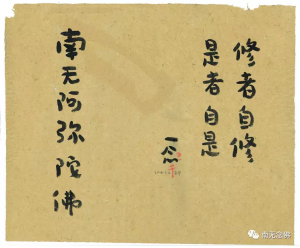 修者自修
是者自是
一念
南无阿弥陀佛
南无念佛